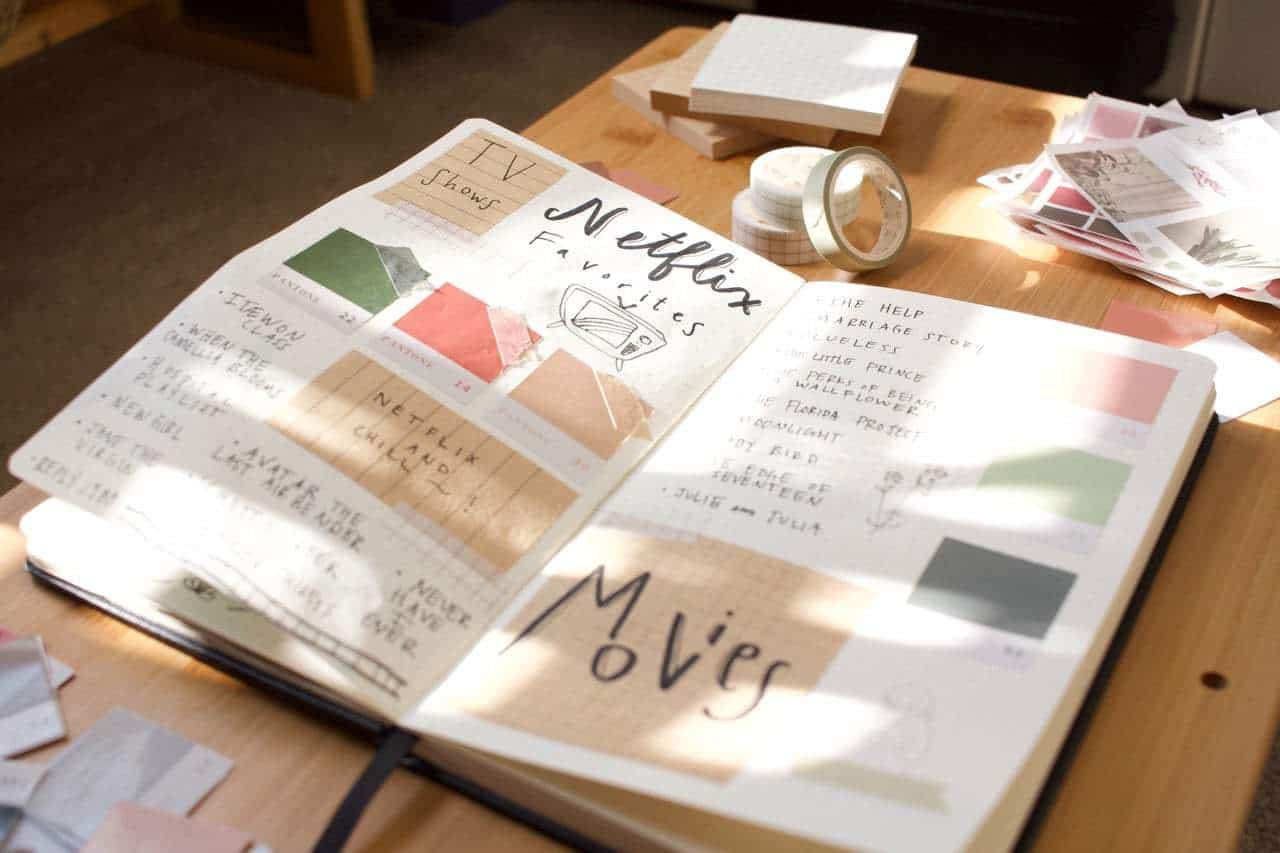 TV
Shows
Netflix
Favorites
PANTONE
22
PANTONE
24
PANTONE
30
• ITEWON
CLASS
• WHEN THE
CAMELLIA BLOOMS
PLAYLIST
• NEW GIRL
• JANE THE
VIRGIN
• REPLY
NETFLIX
AND
CHILL!
• AVATAR THE
LAST AIRBENDER
• NEVER
HAVE
I
EVER
• THE HELP
MARRIAGE STORY
CLUELESS
THE LITTLE PRINCE
PERKS OF BEING
WALLFLOWER
THE FLORIDA PROJECT
MOONLIGHT
DY BIRD
E EDGE OF
SEVENTEEN
• JULIE AND JULIA
Movies